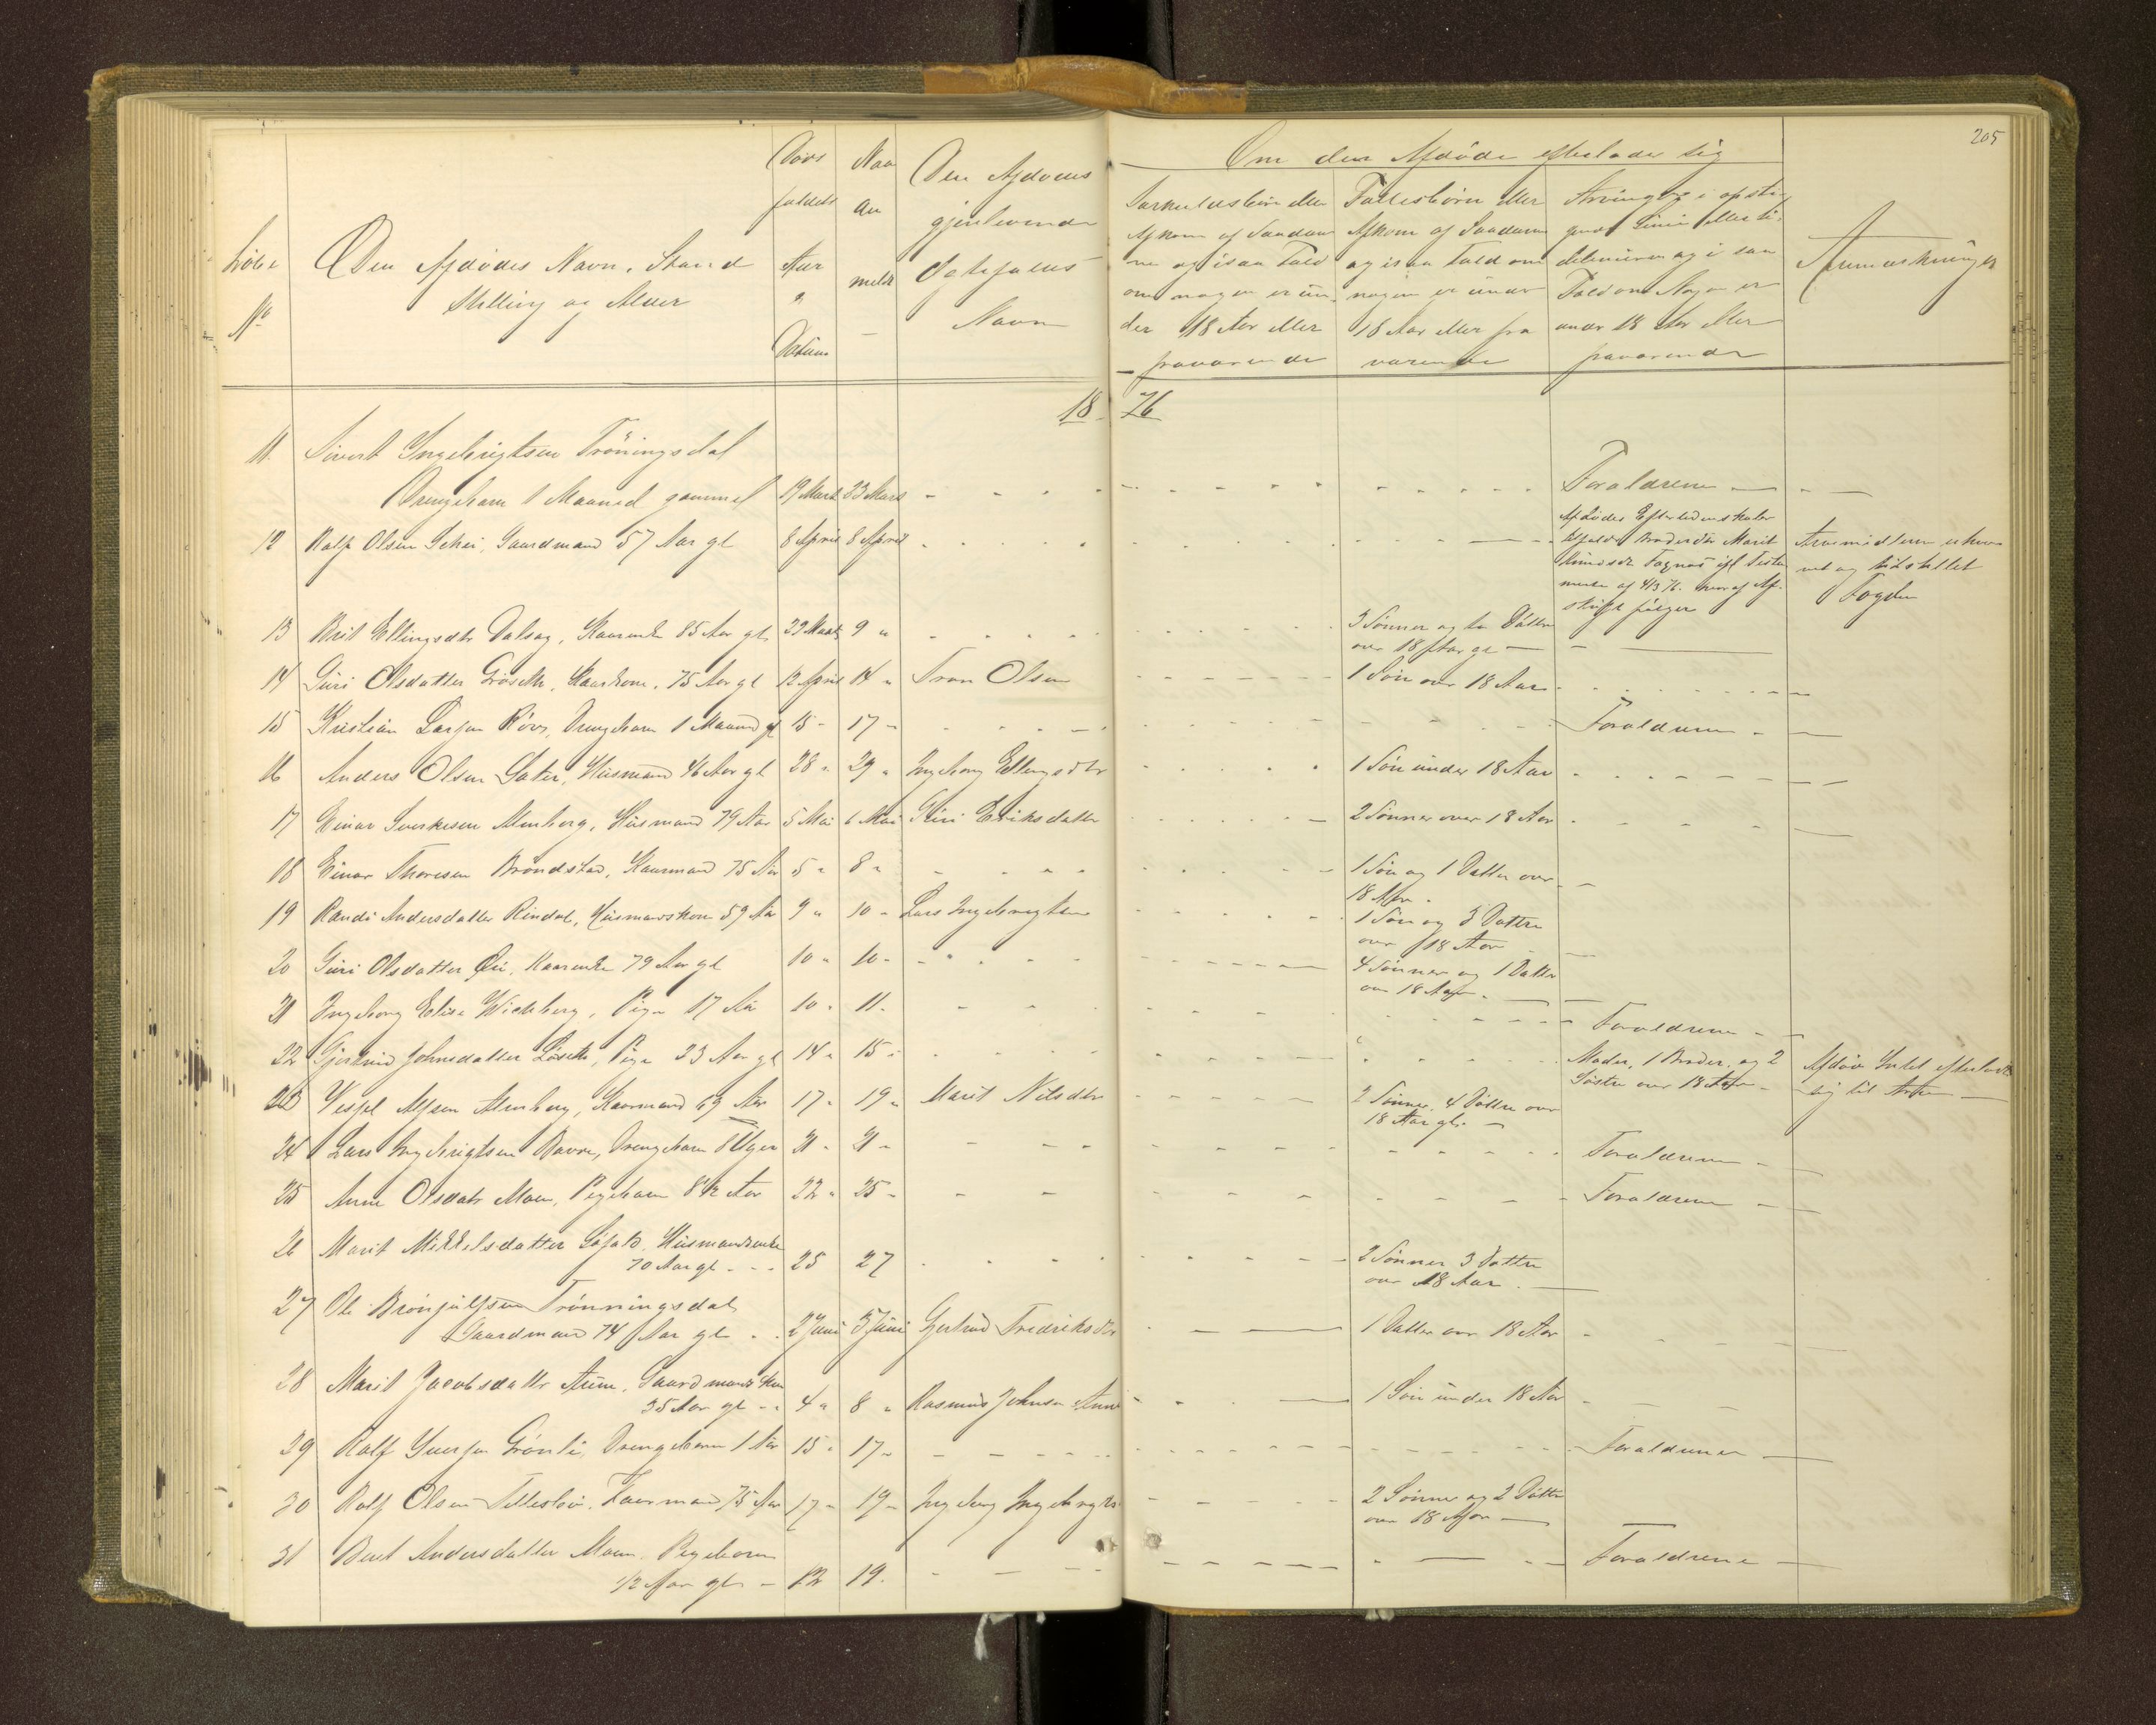 205
Løbe
No
Den Afdødes Navn, Stand
Stilling og Alder
Døds
faldets
Aar
&
Datum
Naar
an
meldt
Den Afdødes
gjenlevende
Ægtefælles
Navn
Om den Afdøde efterlader sig
Særkuldsbørn eller
Afkom af Saadan
ne og i saa Fald
om nogen er un
der 18 Aar eller
fraværende
Fællesbørn eller
Afkom af Saadanne
og i saa Fald om
nogen er under
18 Aar eller fra
værende
Arvinger i opsti
gende Linie eller Si
delinien og i saa
Fald om Nogen er
under 18 Aar eller
fraværende
Anmærkninger
1876
11 Sivert Ingebrigtsen Trøningsdal
Drengebarn 1 Maaned gammel 19 Marts 23 Marts Forældrene
12 Rolf Olsen Gaardmand 57 Aar gl 8 April 8 April
Afdødes Efterladenskaber
Broderdtr Marit
Fagnæs ifl Testa
mente af 4/3 76. hvoraf Af
skrift følger
Arvemidlerne
og tilstillet
Fogden
13 Brit Ellingsdtr Dalsæg, Kaarenke 85 Aar gl. 22 Marts 9 " 3 Sønner og to Døttre
over 18 Aar gl
14 Guri Olsdatter Grøseth, Kaarkone, 75 Aar gl 12 April 14 " Tron Olsen 1 Søn over 18 Aar
15 Kristian Larsen Røv, Drengebarn 1 Maaned gl 15 - 17 - Forældrene
16 Anders Olsen Sæter, Husmand 46 Aar gl 28 " 29 " Ingeborg Ellingsdtr 1 Søn under 18 Aar
17 Einar Sverkesen Almberg, Husmand 79 Aar 5 Mai 6 Mai Guri Eriksdatter 2 Sønner over 18 Aar
18 Einar Thoresen Brøndstad, Kaarmand 75 Aar 5 " 8 " 1 Søn og 1 Datter over
18 Aar
19 Randi Andersdatter Rindal, Husmandskone 59 Aar 9 " 10 " Lars Ingebrigtsen 1 Søn og 3 Døttre
over 18 Aar
20 Guri Olsdatter Øie, Kaarenke 79 Aar gl 10 " 10 - 4 Sønner og 1 Datter
over 18 Aar
21 Ingeborg Elise Wickberg, Pige 17 Aar 10 - 11 - Forældrene
22 Gjertrud Johnsdatter Løseth, Pige 23 Aar gl 14 " 15 - Moder, 1 Broder, og 2
Søstre over 18 Aar
Afdøde Intet efterladt
sig til Arv
23 Alfsen Almberg, Kaarmand 69 Aar 17 - 19 " Marit Nilsdtr 2 Sønner, 4 Døttre over
18 Aar gl.
24 Lars Ingebrigtsen Drengebarn 8 Uger 21 - 21 - Forældrene
25 Anne Olsdatr Moen, Pigebarn 8 1/2 Aar 22 " 25 - Forældrene
26 Marit Mikkelsdatter Husmandsenke
70 Aar gl 25 27 2 Sønner 3 Døttre
over 18 Aar
27 Ole Brønjulfsen Trønningsdal
Gaardmand 74 Aar gl 2 Juni 3 Juni Gjertrud Fredriksdtr 1 Datter over 18 Aar
28 Marit Jacobsdattr Aune, Gaardmands Kone
35 Aar gl 4 " 8 " Rasmus Johnsen Aune 1 Søn under 18 Aar
29 Rolf Iversen Grønli, Drengebarn 1 Aar 15 " 17 - Forældrene
30 Rolf Olsen Tellesløv, Kaarmand 75 Aar 17 - 19 - Ingeborg 2 Sønner og 2 Døttre
over 18 Aar
31 Berit Andersdatter Moen Pigebarn
1/2 Aar gl 19. Forældrene